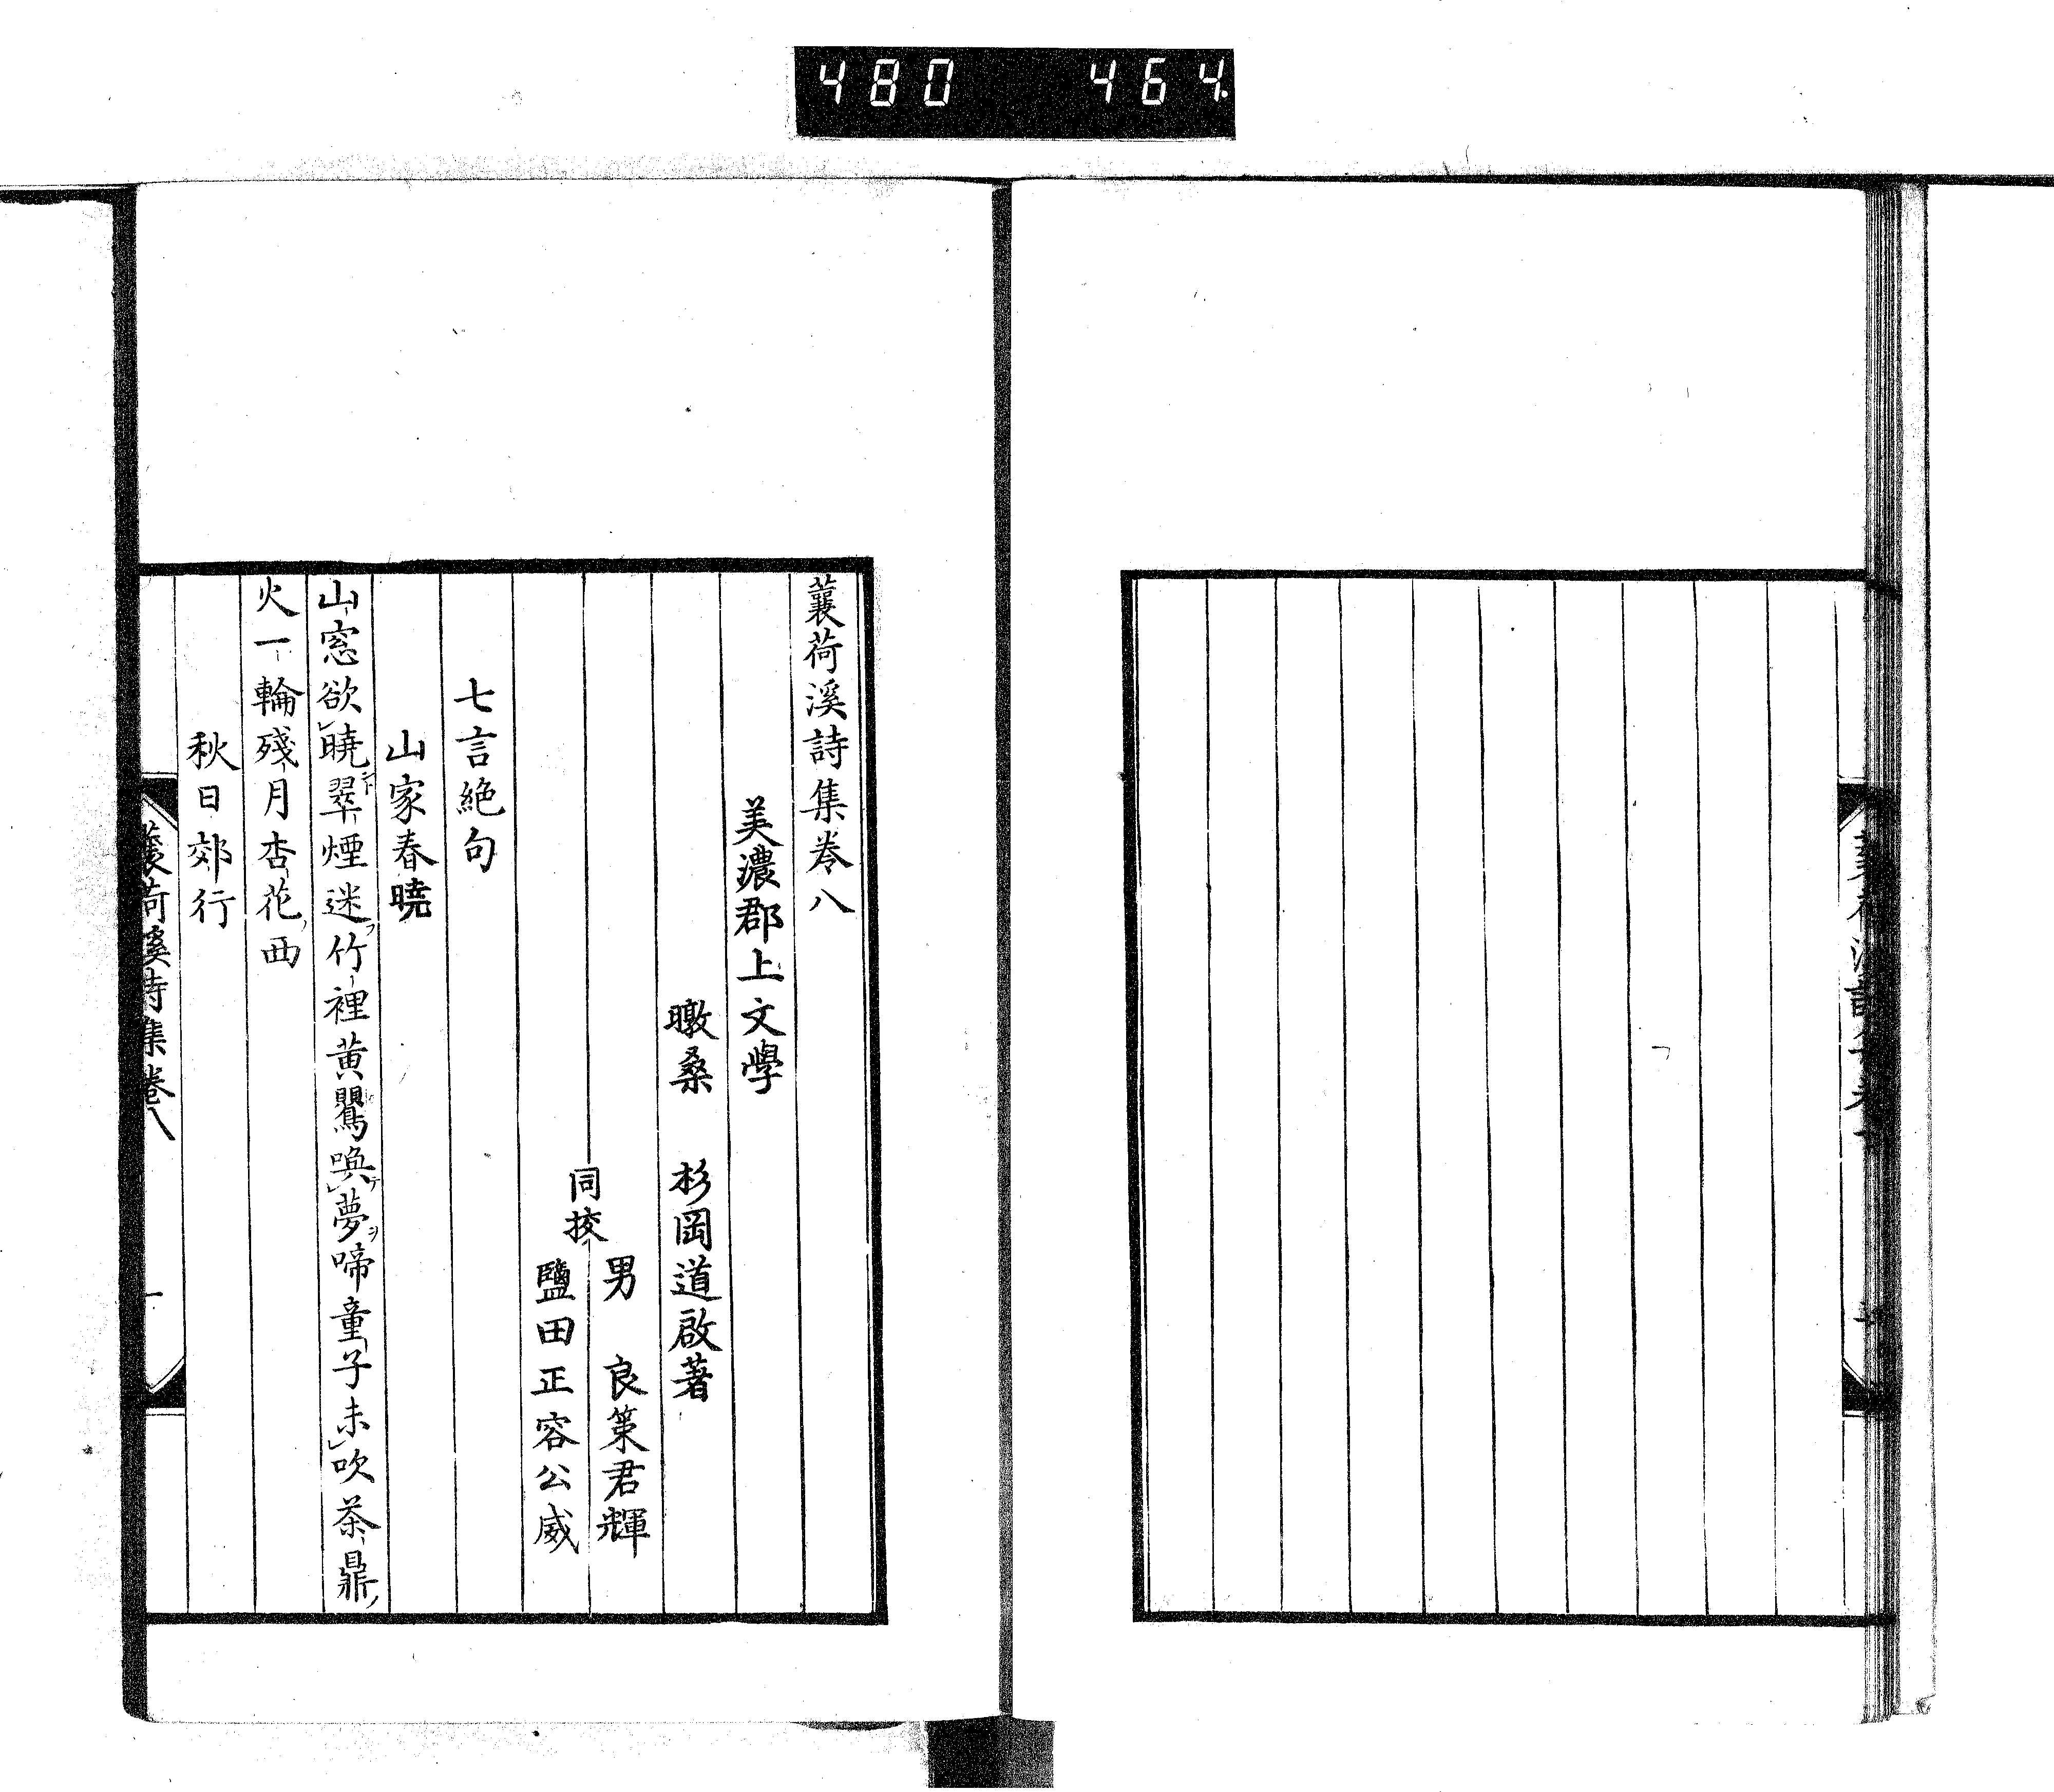 480 464
蘘荷溪詩集卷八
美濃郡上文學
暾桑 杉岡道啟著
同挍
男 良策君輝
鹽田正容公威
七言絶句
山家春曉
山窓欲曉翠煙迷竹裡黄鸎喚夢啼童子未吹茶鼎
火一輪殘月杏花西
秋日郊行
蘘荷溪詩集卷八 一